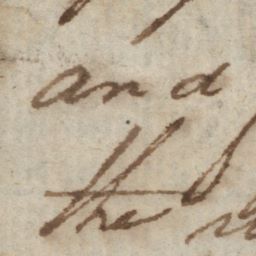 and
the